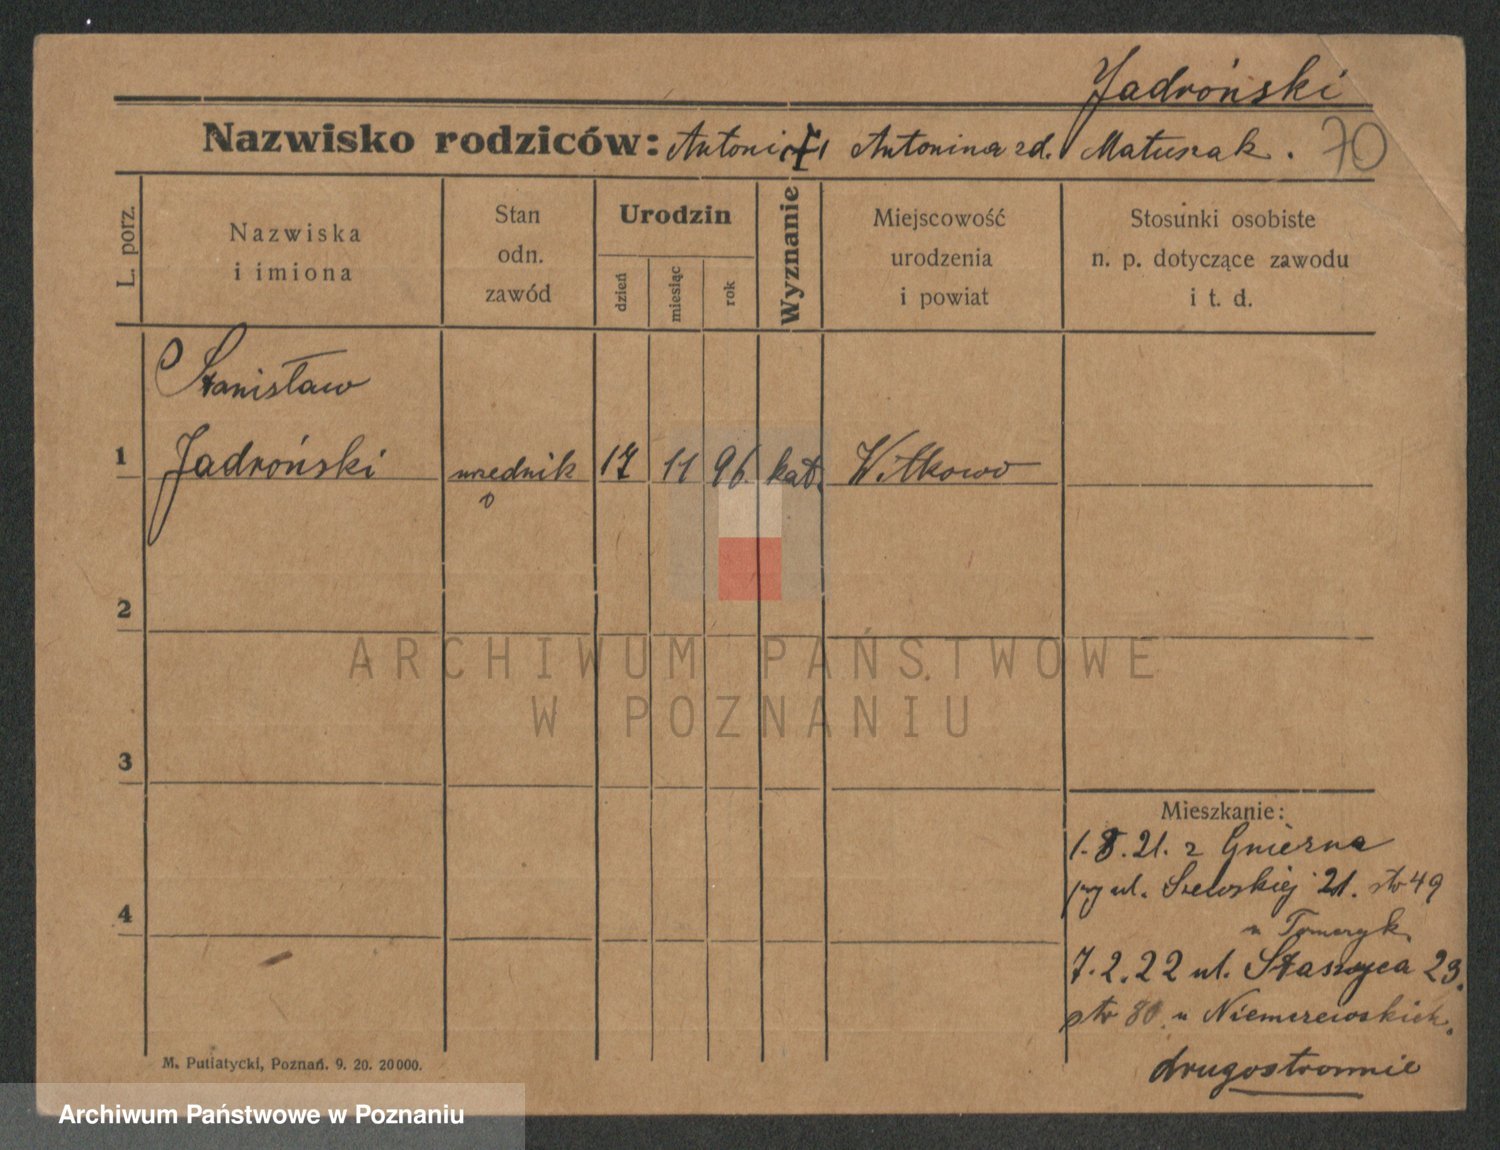 Jadroński
Nazwisko rodziców: Antoni i Antonina zd. Matuszak.
70
L. porz.
Nazwiska
i imiona
Stan
odn.
zawód
Urodzin
dzień
miesiąc
rok
Wyznanie
Miejscowość
urodzenia
i powiat
Stosunki osobiste
n. p. dotyczące zawodu
i t. d.
Stanisław
1 Jadroński urzędnik 17 11 96. kat. Witkowo
2
ARCHIWUM PAŃSTWOWE
W POZNANIU
3
Mieszkanie:
1.8.21. z Gniezna
przy ul. Szewskiej 21. str 49
u
7.2.22 ul. Staszyca 23.
str 80. u Niemczewskich.
drugostronnie
4
M. Putiatycki, Poznań. 9. 20. 20000.
Archiwum Państwowe w Poznaniu